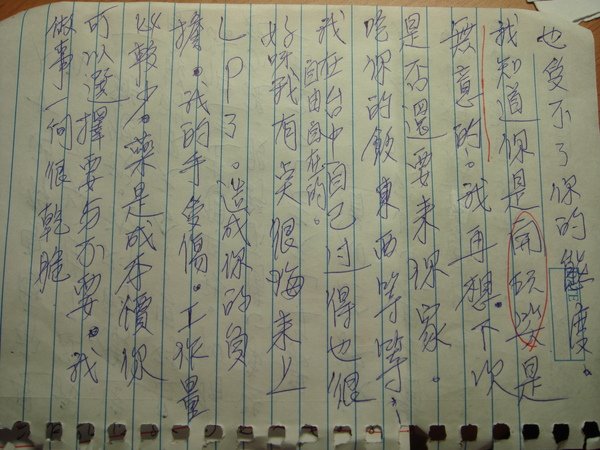 也受不了你的態度。
我知道你是開玩笑是
無意的。我再想下次
是否還要來你家。
吃你的飯東西等等!
我在台中自己过得也很
自由自在的。
好呀我有点很後悔來上
LP了。造成你的負
擔。我的手受傷。工作量
比較少。藥是成本價你
可以選擇要与不要。我
做事一向很乾脆